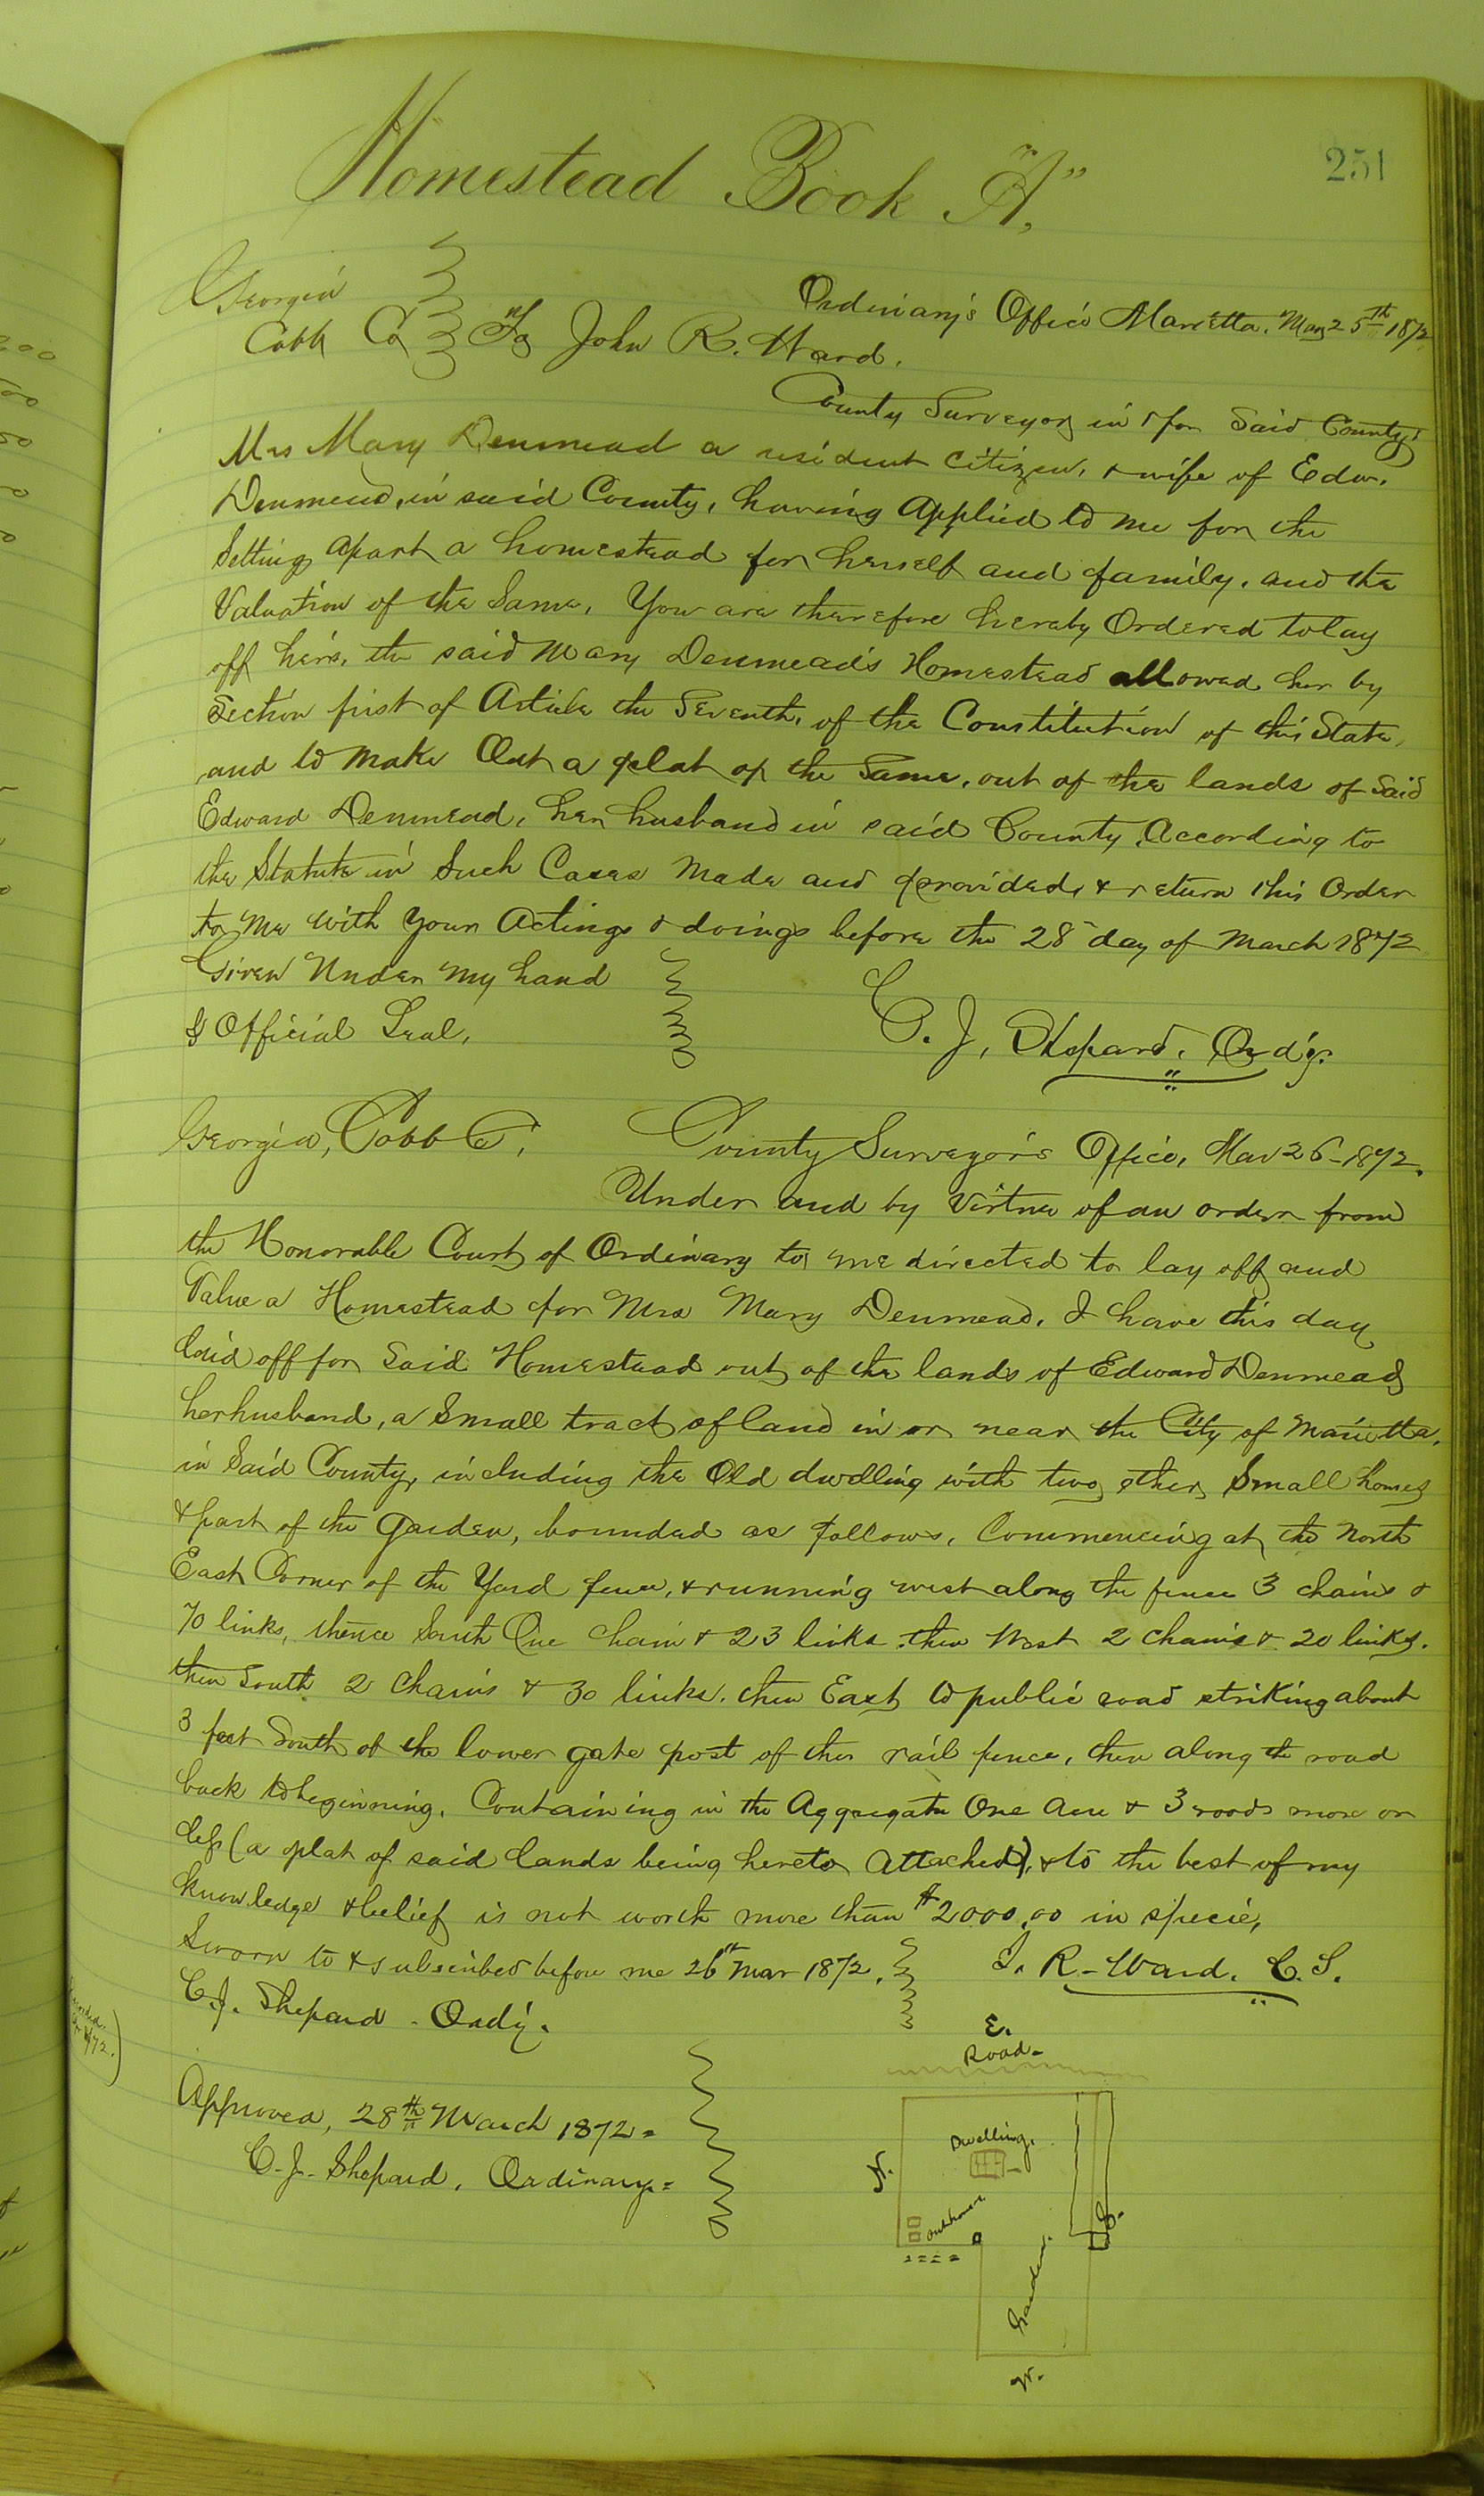 251
Homestead Book "A",
Georgia
Cobb Co
Ordinary's Office Marietta, Mar 25th 1872
To John R. Ward.
County Surveyor in & for Said County:
Mrs Mary Denmead a resident citizen, & wife of Edw.
Denmead, in said County, having applied to me for the
Setting apart a homestead for herself and family, and the
Valuation of the Same, You are therefore hereby Ordered to lay
off hers, the said Mary Denmead's Homestead allowed her by
Section first of Article the Seventh, of the Constitution of this State,
and to make Out a plat of the Same, out of the lands of Said
Edward Denmead, her husband in said County, According to
the Statute in Such Cases Made and provided, & return this Order
to Me with your Actings & doings before the 28 day of March 1872
Given Under My hand
& Official Seal,
C. J. Shepard, Ord'y.
Georgia, Cobb Co,
County Surveyor's Office, Mar 26-1872.
Under and by Virtue of an order from
the Honorable Court of Ordinary to me directed to lay off and
Value a Homestead for Mrs Mary Denmead, I have this day
laid off for Said Homestead out of the lands of Edward Denmead
her husband, a Small tract of land in or near the City of Marietta,
in Said County, including the Old dwelling with two other Small houses
& part of the Garden, bounded as follows, Commencing at the North
East Corner of the Yard fence, & running west along the fence 3 chains &
70 links, thence South One Chain & 23 links, then West 2 chains & 20 links,
then South 2 Chains & 30 links, then East to public road striking about
3 feet South of the lower gate post of the rail fence, then along the road
back to beginning, Containing in the Aggregate One Acre & 3 roods more or
less (a plat of said lands being hereto Attached), & to the best of my
knowledge & belief is not worth more than $2000,00 in specie,
Sworn to & subscribed before me 26th Mar 1872,
J. R. Ward. C. S.
C. J. Shepard - Ord'y.
Approved, 28th March 1872=
C. J. Shepard, Ordinary=
E.
Road-
Dwelling,
N.
outhouse
S.
Garden
W.